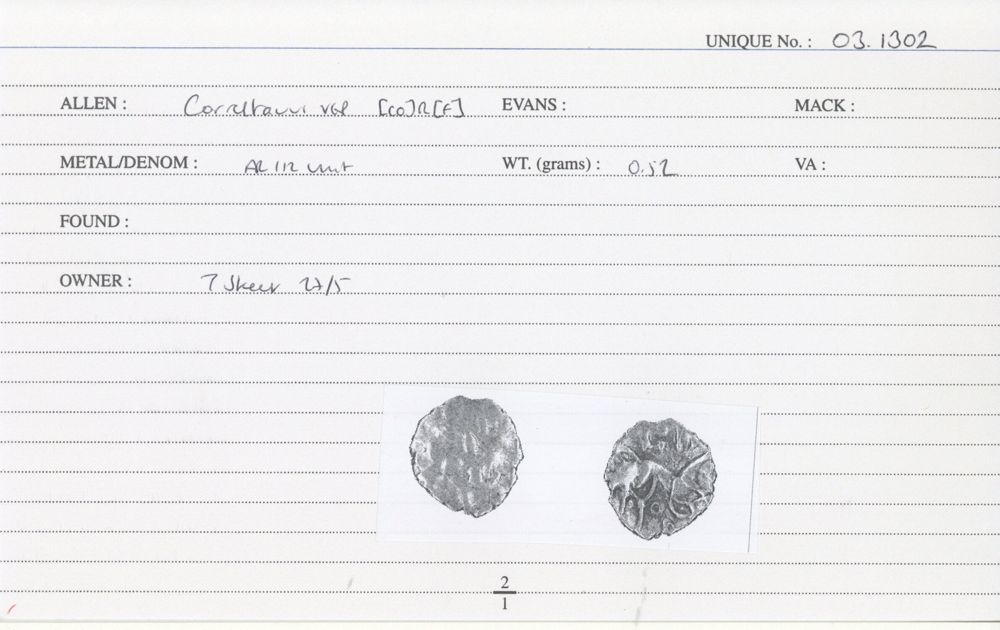 UNIQUE No. : 03.1302
ALLEN : Corieltauvi VEP [CO]R[F] EVANS : MACK :
METAL/DENOM : AR 1/2 unit WT. (grams) : 0.52 VA :
FOUND :
OWNER : 27/5
2
1